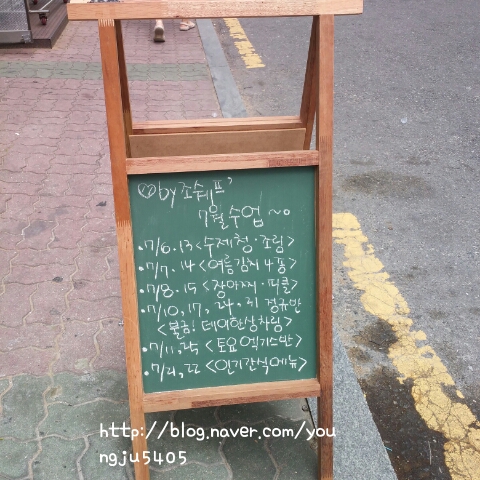 by 조쉐프'
7월 수업 ~o
·7/6. 13 <수제청·조림>
·7/7. 14 <여름김치 4종>
·7/8. 15 <장아찌·피클>
·7/10, 17, 24, 31 정규반
<불금! 데이한상차림>
·7/11, 25 <토요엑기스반>
·7/21, 22 <인기간식메뉴>
http://blog.naver.com/you
ngju5405